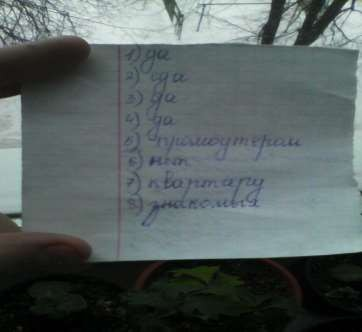 1) да
2) да
3) да
4) да
5) промоутером
6) нет
7) квартиру
8) знакомы